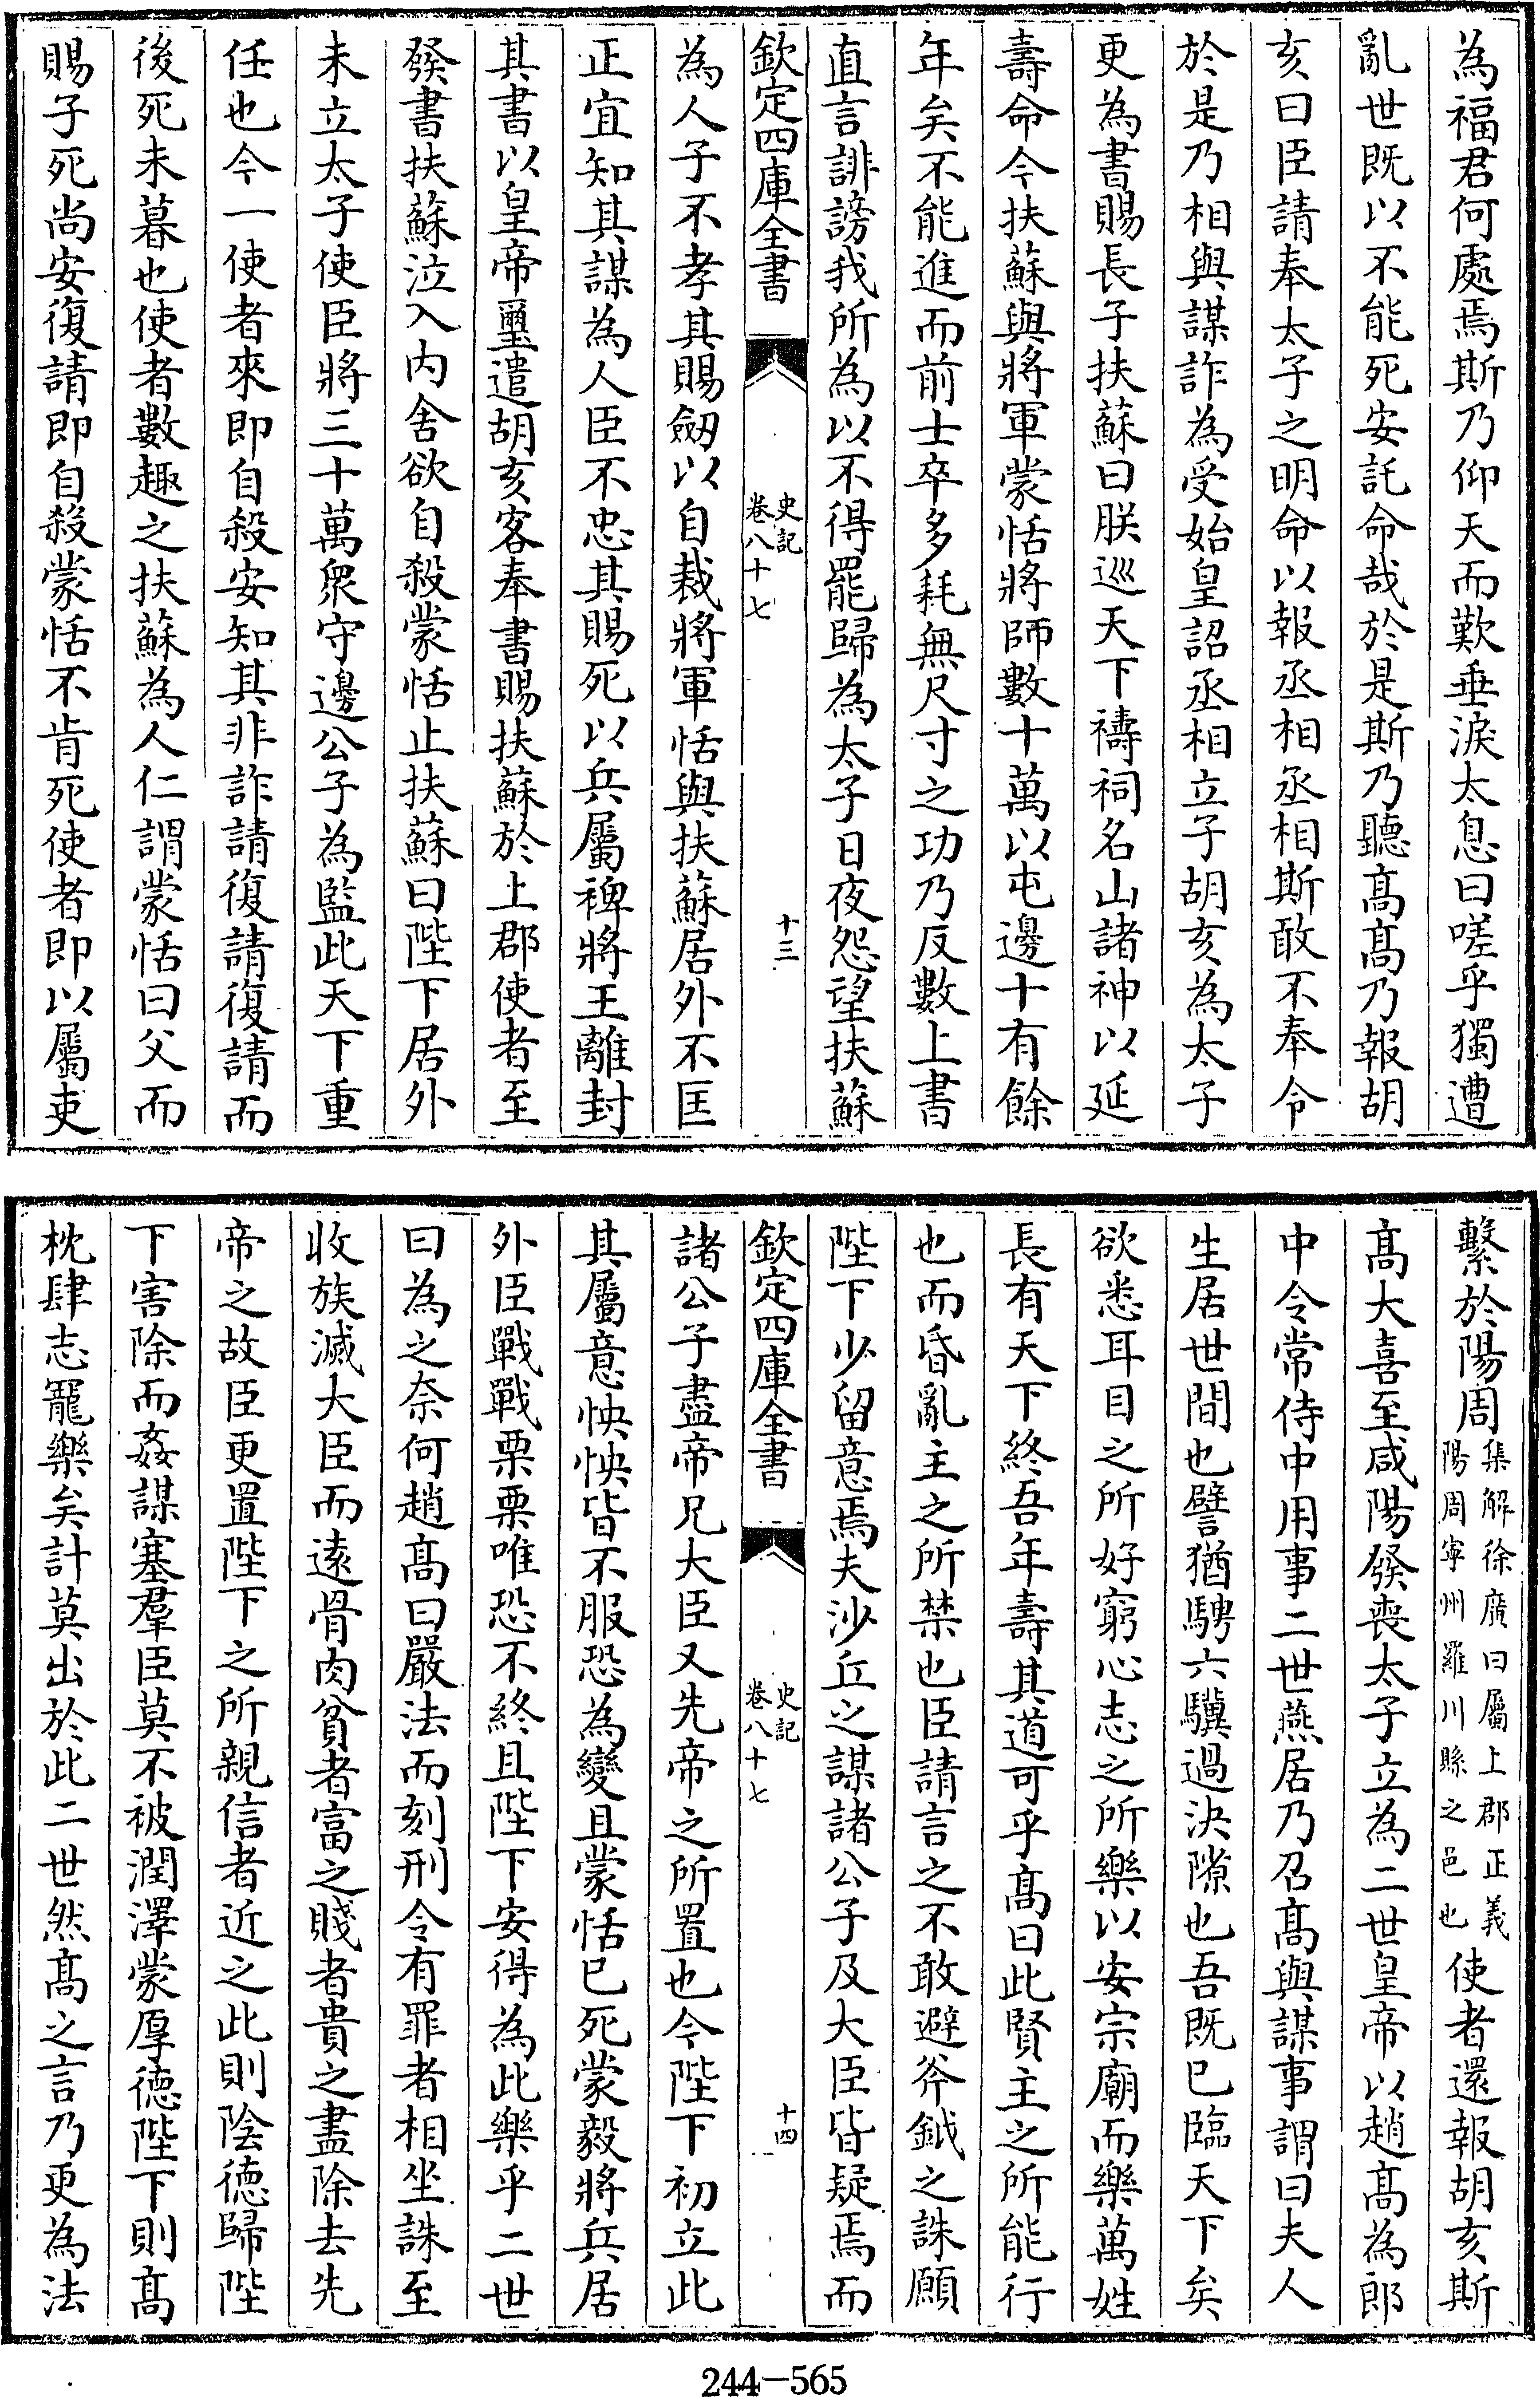 為福君何處焉斯乃仰天而歎垂淚太息曰嗟乎獨遭
亂世既以不能死安託命哉於是斯乃聽髙髙乃報胡
亥曰臣請奉太子之明命以報丞相丞相斯敢不奉令
於是乃相與謀詐為受始皇詔丞相立子胡亥為太子
更為書賜長子扶蘇曰朕巡天下禱祠名山諸神以延
壽命今扶蘇與將軍蒙恬將師數十萬以屯邊十有餘
年矣不能進而前士卒多耗無尺寸之功乃反數上書
直言誹謗我所為以不得罷歸為太子日夜怨望扶蘇
欽定四庫全書
史記
卷八十七
十三
為人子不孝其賜劒以自裁將軍恬與扶蘇居外不匡
正宜知其謀為人臣不忠其賜死以兵屬裨將王離封
其書以皇帝璽遣胡亥客奉書賜扶蘇於上郡使者至
發書扶蘇泣入内舍欲自殺蒙恬止扶蘇曰陛下居外
未立太子使臣將三十萬衆守邊公子為監此天下重
任也今一使者來即自殺安知其非詐請復請復請而
後死未暮也使者數趣之扶蘇為人仁謂蒙恬曰父而
賜子死尚安復請即自殺蒙恬不肯死使者即以屬吏
繫於陽周
集解徐廣曰屬上郡正義
陽周寧州羅川縣之邑也
使者還報胡亥斯
髙大喜至咸陽發喪太子立為二世皇帝以趙髙為郎
中令常侍中用事二世燕居乃召髙與謀事謂曰夫人
生居世間也譬猶騁六驥過決隙也吾既已臨天下矣
欲悉耳目之所好窮心志之所樂以安宗廟而樂萬姓
長有天下終吾年壽其道可乎髙曰此賢主之所能行
也而昏亂主之所禁也臣請言之不敢避斧鉞之誅願
陛下少留意焉夫沙丘之謀諸公子及大臣皆疑焉而
欽定四庫全書
史記
卷八十七
十四
諸公子盡帝兄大臣又先帝之所置也今陛下初立此
其屬意怏怏皆不服恐為變且蒙恬已死蒙毅將兵居
外臣戰戰栗栗唯恐不終且陛下安得為此樂乎二世
曰為之奈何趙髙曰嚴法而刻刑令有罪者相坐誅至
收族滅大臣而逺骨肉貧者富之賤者貴之盡除去先
帝之故臣更置陛下之所親信者近之此則陰徳歸陛
下害除而姦謀塞羣臣莫不被潤澤蒙厚徳陛下則髙
枕肆志寵樂矣計莫出於此二世然髙之言乃更為法
244-565